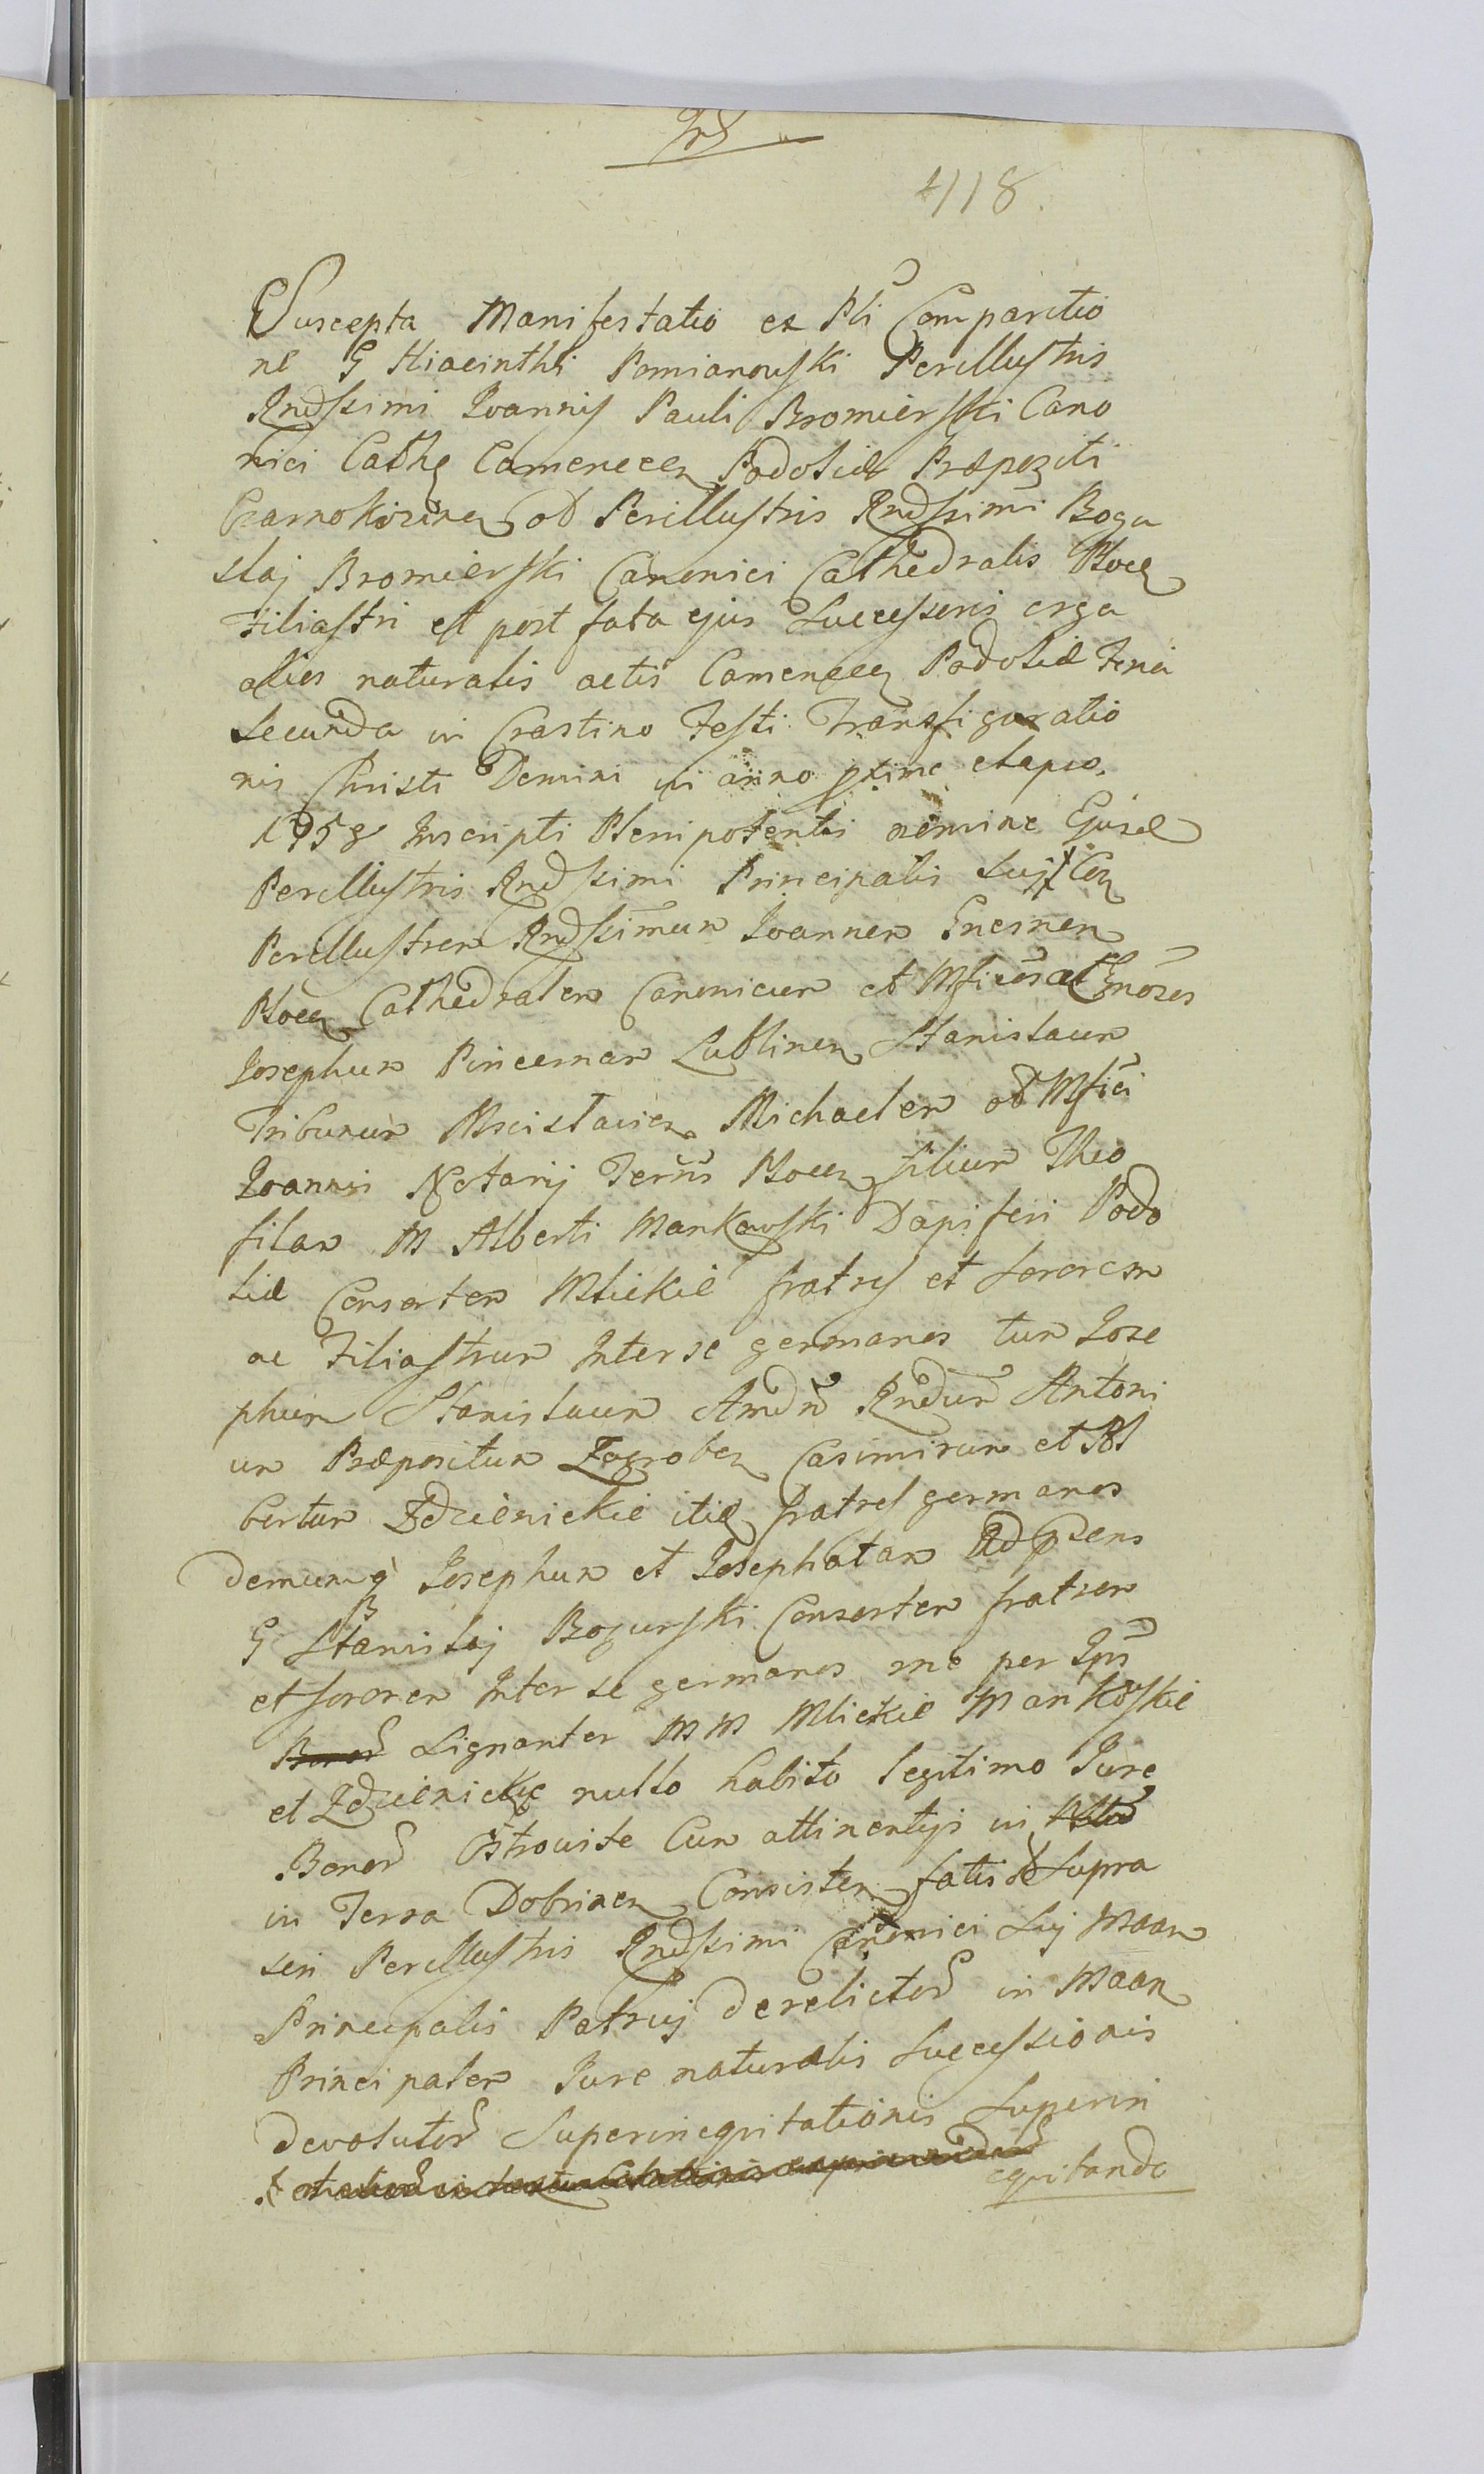 418.
Suscepta Manifestatio ex Pli Comparitio
ne G Hiacinthi Pomianowski Perillustris
Rndssimi Joannis Pauli Bromierski Cano
nici Cathe Camenecen Podoliæ Præpoziti
Czarnokozinen ad Perillustris Rndssimi Bogu
slaj Bromierski Canonici Cathedralis Plocen
Filiastri et post fata ejus Successoris erga
alias naturalis actis Camenecen Podoliæ Feria
Secunda in Crastino Festi Transfiguratio
nis Christi Domini in anno pxime elapso.
1758 Inscripti Plenipotentis nomine Ejusd
Perillustris Rndssimi Principalis sui Con
Perillustrem Rndssimum Joannem Gnesnen
Plocen Cathedralem Canonicum et Mficos ac Gnosos
Josephum Pincernam Lublinen Stanislaum
Tribunum Mscislavien Michaelem od Mfici
Joannis Notarij Terris Plocen filium Theo
filam M Alberti Mankowski Dapiferi Podo
liæ Consortem Mlickie fratres et Sororem
ac Filiastrum Inter se germanos tum Jose
phum Stanislaum Amdn Rndum Antoni
um Præpositum Zagroben Casimirum et Al
bertum Zdzienickie itid fratres germanos
demumq Josephum et Josephatam Ad psens
G Stanislaj Bogurski Consortem fratrem
et sororem Inter se germanos me per Ips
Bonor Signanter MM Mlickie Mankoskie
et Zdzienickie nullo habito legitimo Jure
Bonor Ostrowite Cum attinentijs in
in Terra Dobrinen Consisten fatis de Supra
sen Perillustris Rndssimi Canonici Sui Maan
Principalis Patruj derelictor in Maan
Principalem Jure naturalis Successionis
devolutor Superinequitationis Superin
equitando